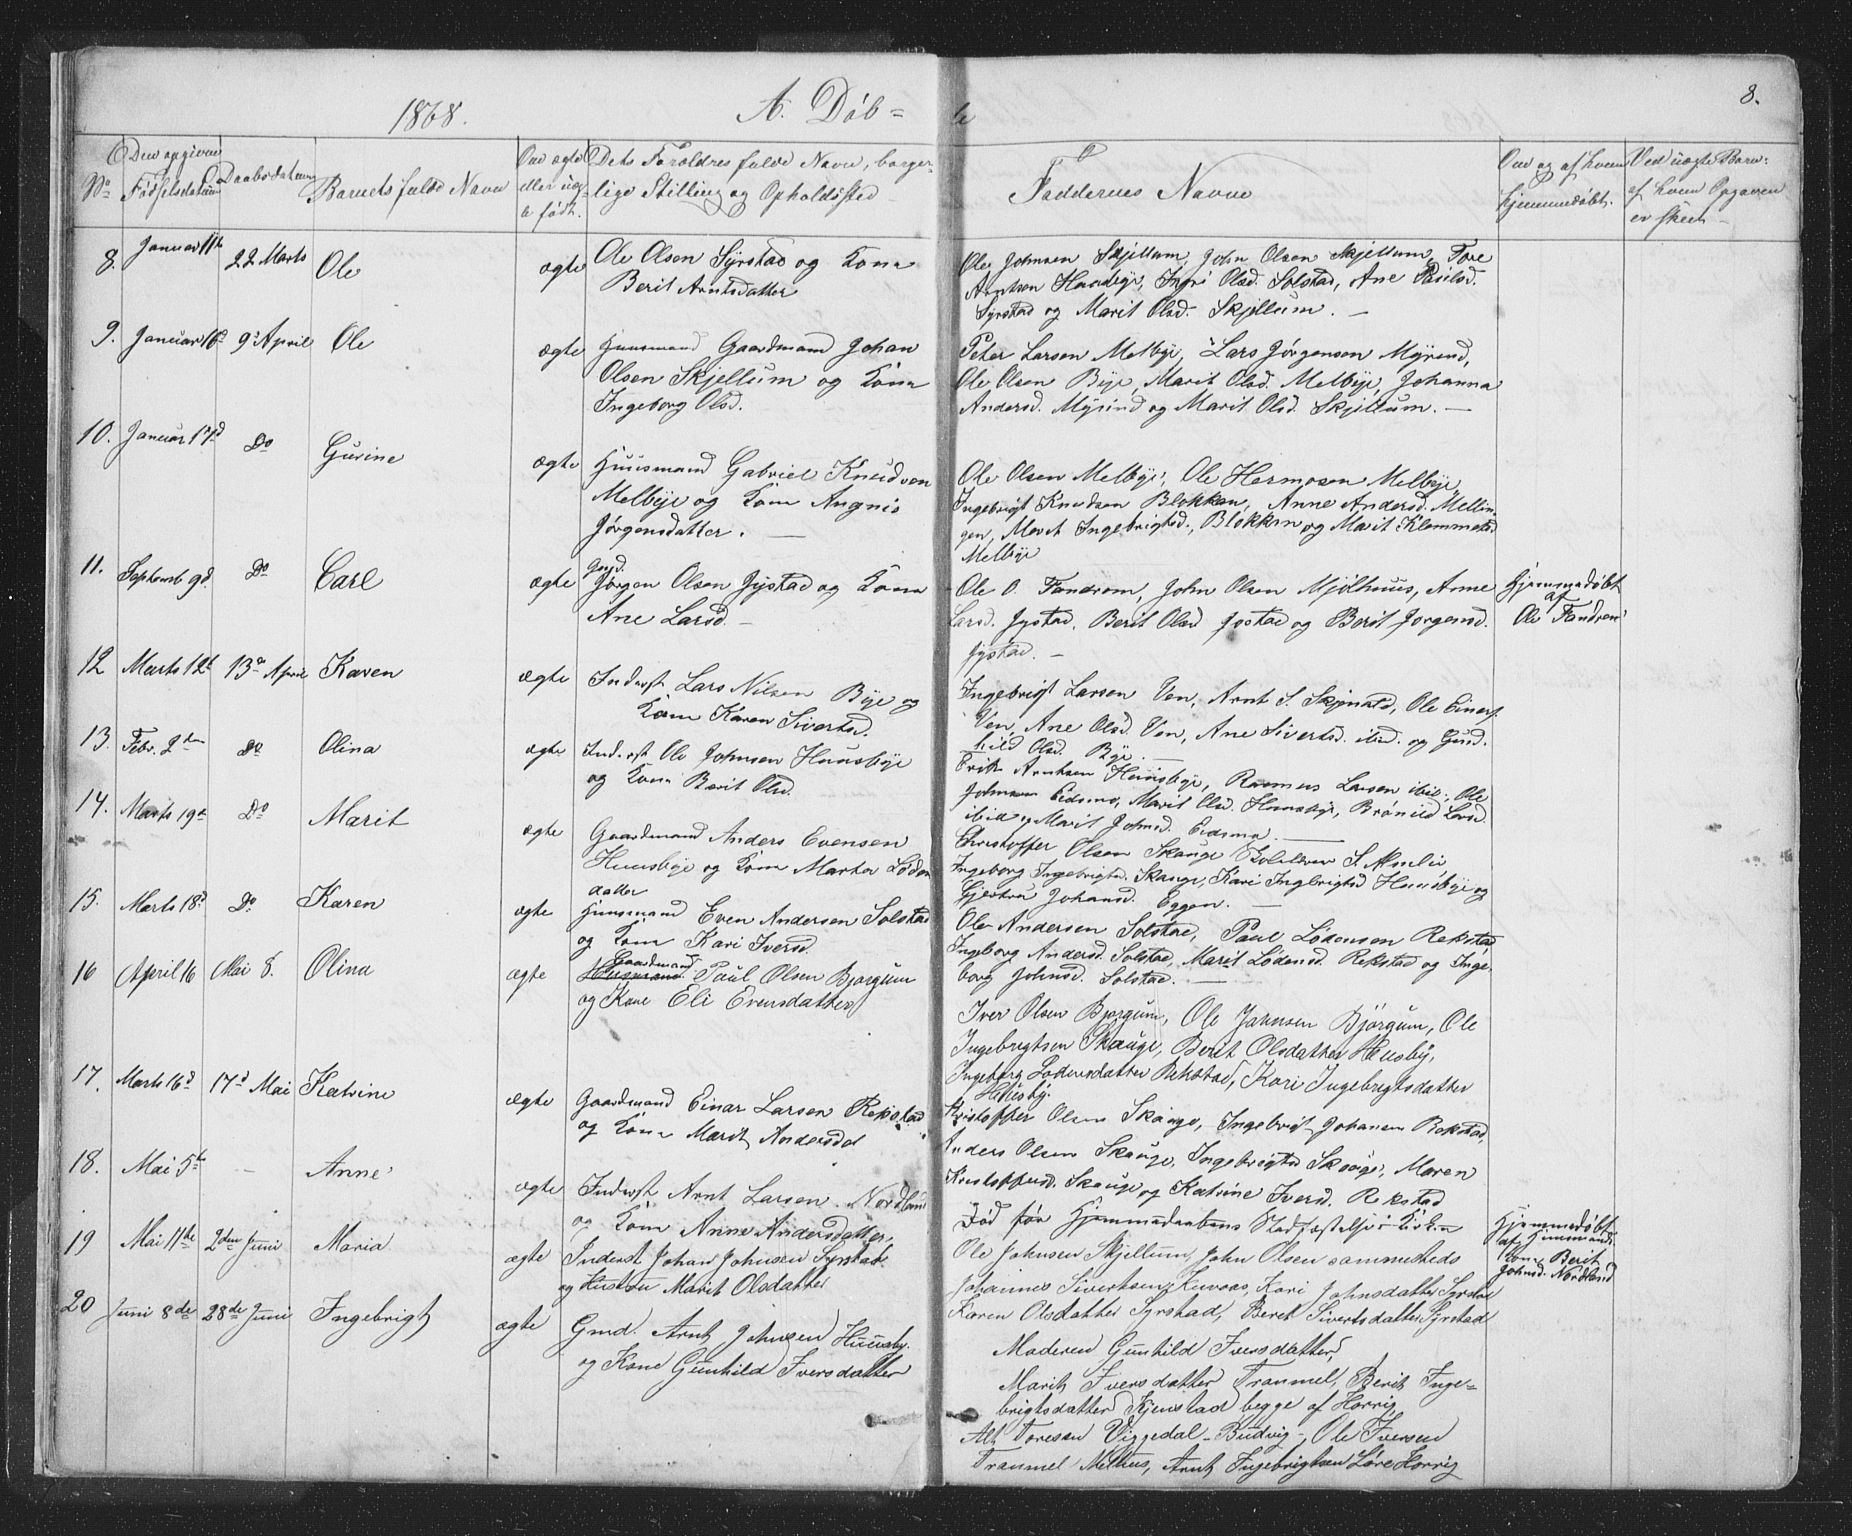 1868.
A. Döb=
le
8.
No
Den opgivne Fødselsdatum
Daabsdatum
Barnets fulde Navn
Om ægte eller uæg- te født.
Dets Forældres fulde Navn, borger-
lige Stilling og Opholdssted
Faddernes Navne
Om og af hvem hjemmedøbt.
Ved uægte Børn: af hvem Opgaven er skeet
8. Januar 11te 22 Marts Ole ægte Ole Olsen Syrstad og Kone
Berit Arntsdatter
Ole Johnsen Skjellum, John Olsen Skjellum, Tore
Arntsen Hundeye, Ingri Olsd. Solstad, Ane
Syrstad og Marit Olsd. Skjellum. —
9. Januar 16d 9de April Ole ægte Huusmand Gaardmand Johan
Olsen Skjellum og Kone
Ingeborg Olsd.
Peter Larsen Melbye, Lars Jørgensen Myrend,
Ole Olsen Bye, Marit Olsd. Melbye, Johanna
Andersd. Myrind og Marit Olsd. Skjellum. —
10. Januar 17d Do Gurine ægte Huusmand Gabriel Knudsen
Melbye og Kone Angnis
Jørgensdatter. —
Ole Olsen Melbye, Ole Hermosen Melbye,
Ingebrigt Knudsen Blokken, Anne Andersd. Mellin-
gen, Marit Ingebrigtsd. Blokken og Marit Klemmetsd
Melbye
11. Septemb 9d. Do Carl ægte Gmd.
Jørgen Olsen Jystad og Kone
Ane Larsd. —
Ole O. Fandrem, John Olsen Mjölhuus, Anne
Larsd. Jystad, Berit Olsd Jystad og Berit Jørgensd.
Jystad. —
Hjemmedøbt
af
Ole Fandrem
12 Marts 12t 13de April Karen ægte Inderst Lars Nilsen Bye og
Kone Karen Sivertsd.
Ingebrigt Larsen Ven, Arnt S. Skjenald, Ole Einers.
Ven, Ane Olsd. Ven, Ane Sivertsd. ibid. og Gund-
hild Olsd. Bye. —
13. Febr. 2den Do Olina ægte Inderst Ole Johnsen Huusbye
og Kone Berit Olsd.
Erik Arntsen Huusbye, Rasmus Larsen ibid., Ole
Johnsen Eidsmo, Marit Olsd. Huusbye, Brönild Larsd.
ibid og Marit Johnsd. Eidsmo. —
14. Marts 19d Do Marit ægte Gaardmand Anders Evensen
Huusbye og Kone Marta Loden
datter
Christoffer Olsen Skauge
Ingeborg Ingebrigtsd. Skauge, Kari Ingebrigtsd Huusbye og
Gjertru Johansd. Eggen. —
15. Marts 18d Do Karen ægte Huusmand Even Andersen Solstad
og Kone Kari Iversd.
Ole Andersen Solstad, Paul Lodensen Rekstad
Ingeborg Andersd. Solstad, Marit Lodensd Rekstad og Inge-
borg Johnsd. Solstad. —
16 April 16 Mai 8. Olina ægte Gaardmand
Husmand Paul Olsen Bjørgum
og Kone Eli Evensdatter
Iver Olsen Bjørgum, Ole Jakobsen Bjørgum, Ole
Ingebregtsen Skauge, Berit Olsdatter Husby,
Ingeborg Lodensdatter Rekstad, Kari Ingebregtsdatter
Huusby.
17. Marts 16d 17d Mai Katrine ægte Gaardmand Einar Larsen Rekstad
og Kone Marit Andersdat
Kristoffer Olsen Skauge, Ingebrigt Johansen Rekstad,
Anders Olsen Skauge, Ingebrigta Skauge, Maren
Kristoffersd. Skauge og Katrine Iversd. Rekstad
18. Mai 5te — Anne ægte Inderst Arnt Larsen Nordland
og Kone Anne Andersdatter,
Død før Hjemmedaabens Stadfæstelse i Kirken
Hjemmedøbt
af Huusmands
kone Berit
Johnsd. Nordland
19 Mai 11te 2den Juni Maria ægte Inderst Johan Johnsen Syrstad
og Hustru Marit Olsdatter
Ole Johnsen Skjellum, John Olsen sammesteds
Johannes Sivertsen Kuvaas, Kari Johnsdatter Syrstad
Karen Olsdatter Syrstad, Beret Sivertsdatter Syrstad
20 Juni 8de 28de Juni Ingebrigt ægte Gmd. Arnt Johnsen Huusby.
og Kone Gunhild Iversdatter
Moderen Gunhild Iversdatter,
Marit Iversdatter Trammel, Berit Inge-
brigtsdatter Kjenstad begge af Horrig
Toresen Viggedal - Budvig -, Ole Iversen
Trammel Melhus, Arnt Ingebrigtsen Løre Horrig